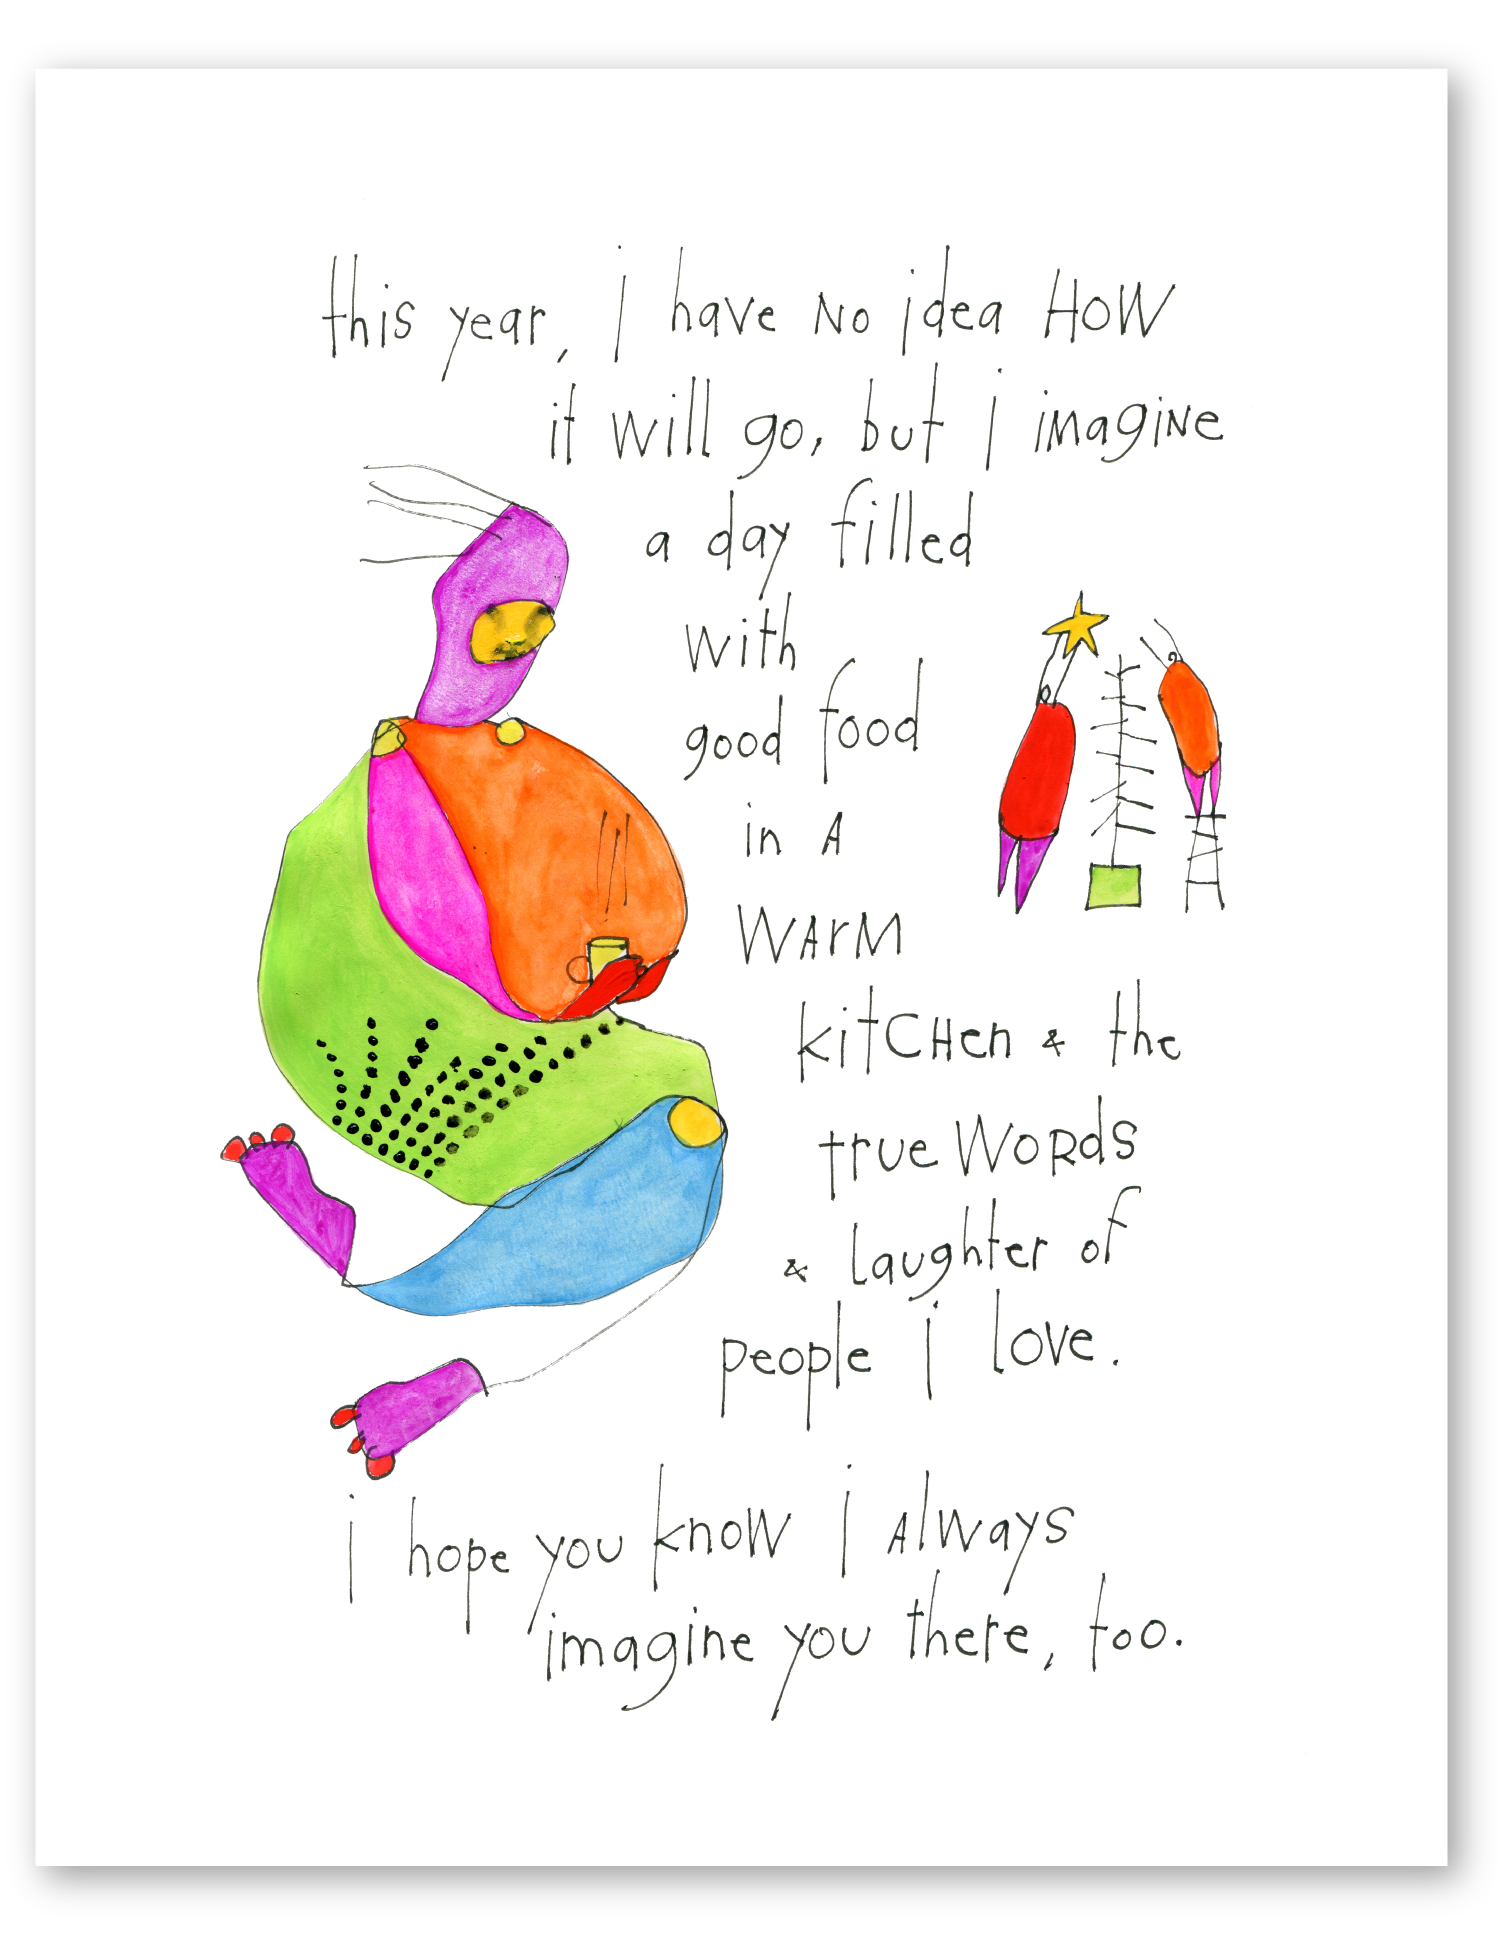 this year, i have No idea HOW
it will go, but i imagiNe
a day filled
with
good food
in A
WArM
kitCHen & the
true WORds
& laughter of
people i love.
i hope you know i AlWays
imagine you there, too.